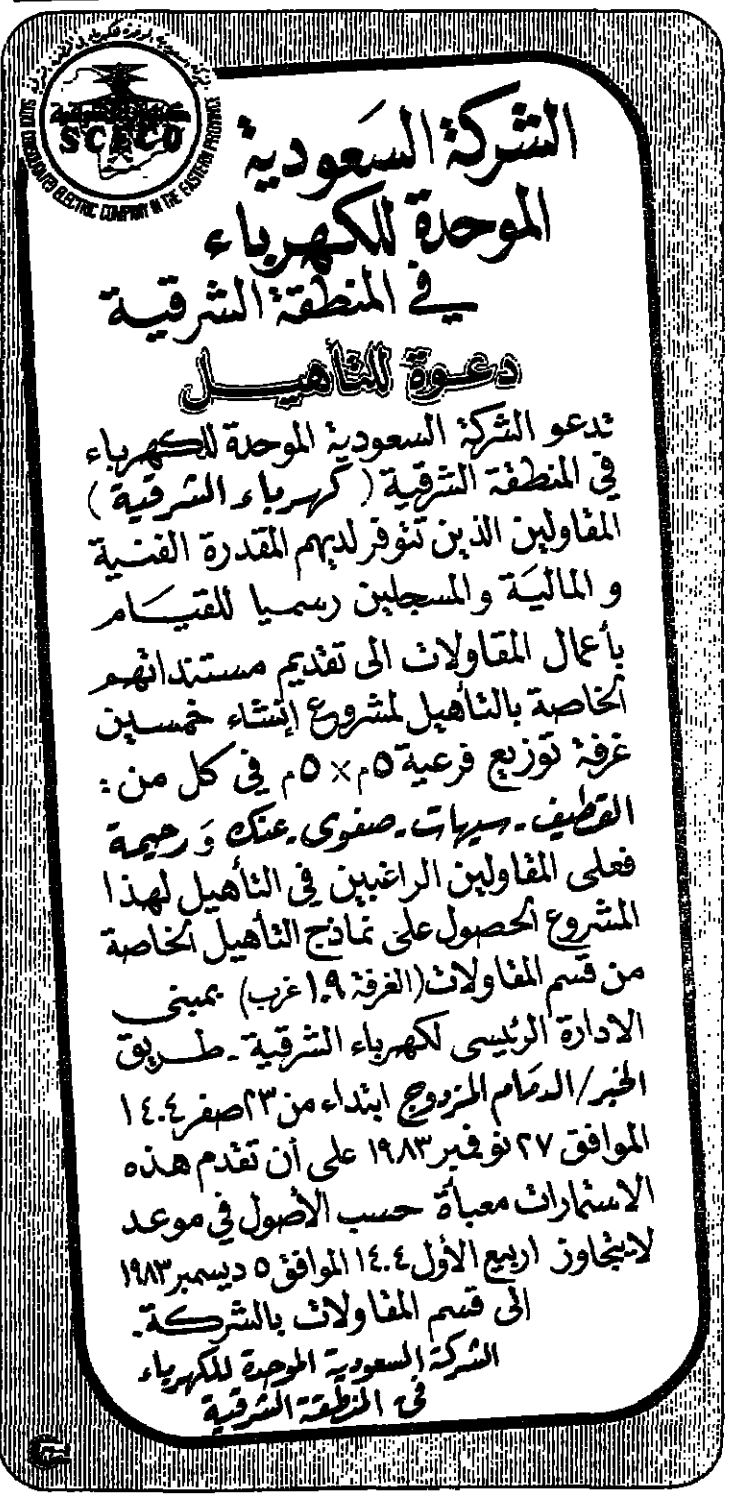 SCECO
ELECTRIC COMPANY IN THE EASTERN PROVINCE
الشركة السعودية
الموحدة للكهرباء
في المنطقة الشرقية
دعوة للتأهيل
تدعو الشركة السعودية الموحدة للكهرباء
في المنطقة الشرقية (كهرباء الشرقية)
المقاولين الذين تتوفر لديهم المقدرة الفنية
و المالية والمسجلين رسميا للقيام
بأعمال المقاولات الى تقديم مستنداتهم
الخاصة بالتأهيل لمشروع إنشاء خمسين
غرفة توزيع فرعية ٥م×٥م في كل من :
القطيف - سيهات - صفوى - عنك وَ رحيمة
فعلى المقاولين الراغبين في التأهيل لهذا
المشروع الحصول على نماذج التأهيل الخاصة
من قسم المقاولات (الغرفة ١٠٩ غرب) بمبنى
الادارة الرئيسى لكهرباء الشرقية - طريق
الخبر/الدمام المزدوج ابتداء من ٢٣ صفر ١٤٠٤
الموافق ٢٧ نوفمبر ١٩٨٣ على أن تقدم هذه
الاستمارات معبأة حسب الأصول في موعد
لايتجاوز ١ ربيع الأول ١٤٠٤ الموافق ٥ ديسمبر ١٩٨٣
الى قسم المقاولات بالشركة.
الشركة السعودية الموحدة للكهرباء
في المنطقة الشرقية